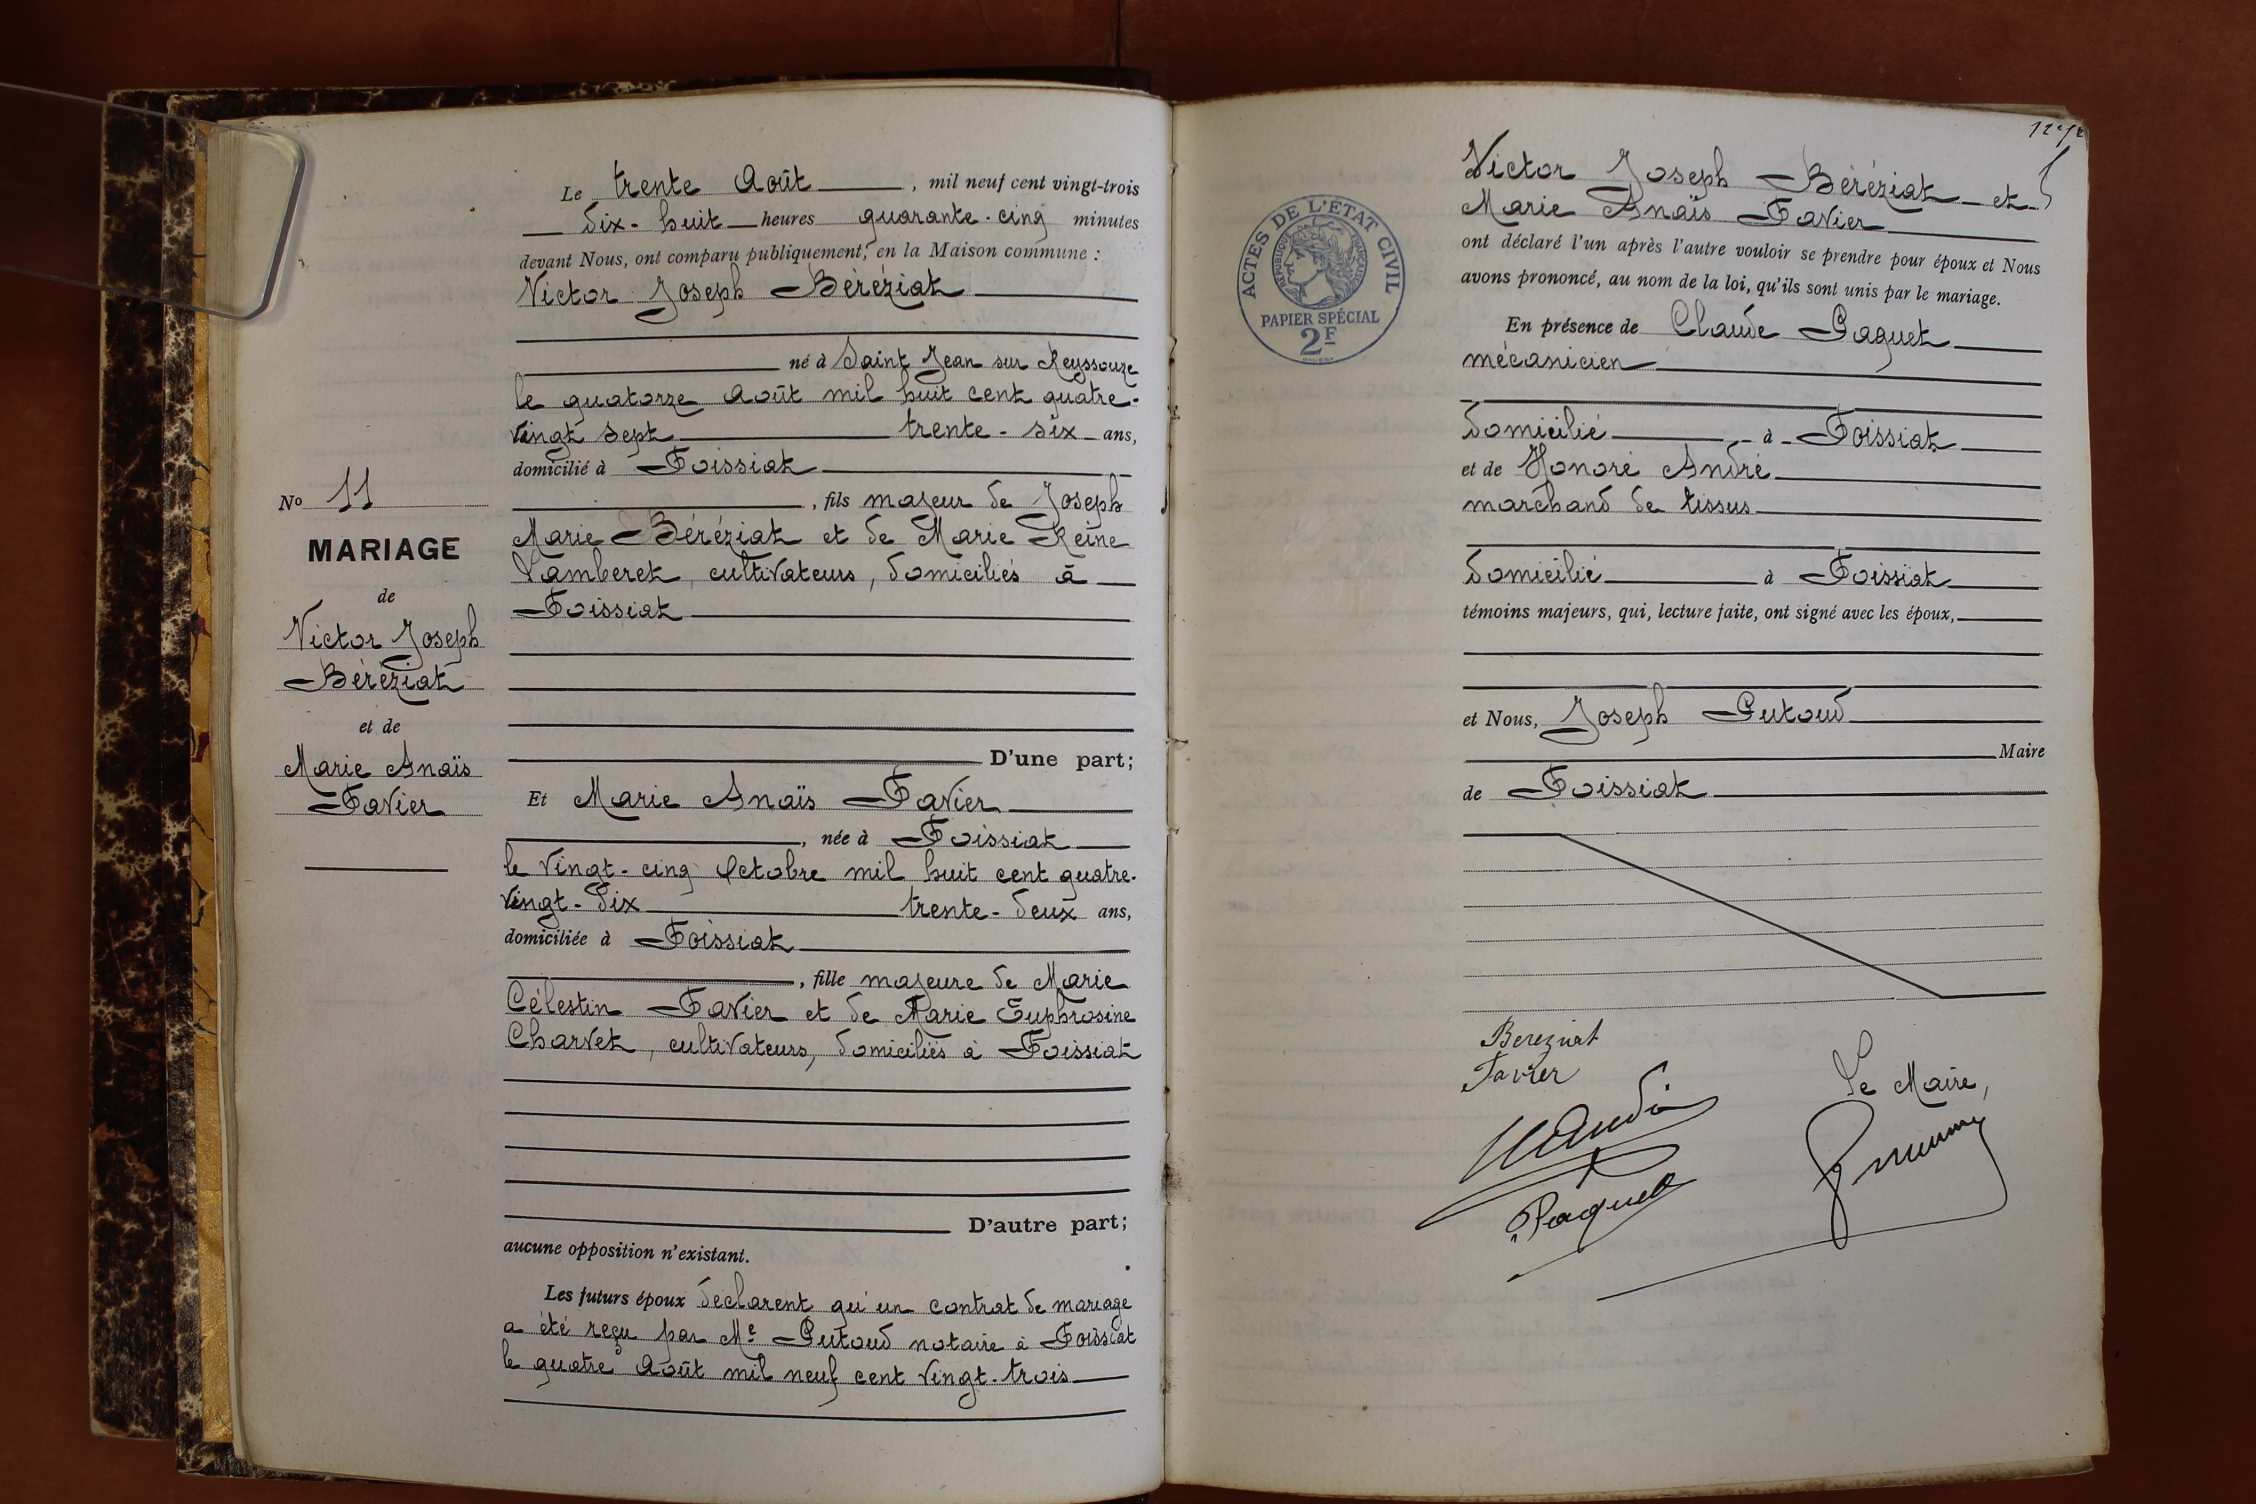 Le trente Août, mil neuf cent vingt-trois
dix-huit heures quarante-cinq minutes
devant Nous, ont comparu publiquement, en la Maison commune :
Victor Joseph Béréziat
né à Saint Jean sur Reyssouze
le quatorze Août mil huit cent quatre-
vingt sept trente-six ans,
domicilié à Foissiat
, fils majeur de Joseph
Marie Béréziat et de Marie Reine
Lamberet, cultivateurs, domiciliés à
Foissiat
D'une part;
Et Marie Anaïs Favier
, née à Foissiat
le vingt-cinq Octobre mil huit cent quatre-
vingt-dix trente-deux ans,
domiciliée à Foissiat
, fille majeure de Marie
Célestin Favier et de Marie Euphrosine
Charvet, cultivateurs, domiciliés à Foissiat
D'autre part;
aucune opposition n'existant.
Les futurs époux déclarent qu'un contrat de mariage
a été reçu par Me Putoud notaire à Foissiat
le quatre Août mil neuf cent vingt-trois
No 11
MARIAGE
de
Victor Joseph
Béréziat
et de
Marie Anaïs
Favier
ACTES DE L'ETAT CIVIL
REPUBLIQUE FRANÇAISE
PAPIER SPÉCIAL
2F
Victor Joseph Béréziat et
Marie Anaïs Favier
ont déclaré l'un après l'autre vouloir se prendre pour époux et Nous
avons prononcé, au nom de la loi, qu'ils sont unis par le mariage.
En présence de Claude Paquet
mécanicien
domicilié à Foissiat
et de Honoré André
marchand de tissus
domicilié à Foissiat
témoins majeurs, qui, lecture faite, ont signé avec les époux,
et Nous, Joseph Putoud
Maire
de Foissiat
Bereziat
Favier
Le Maire,
Paquet